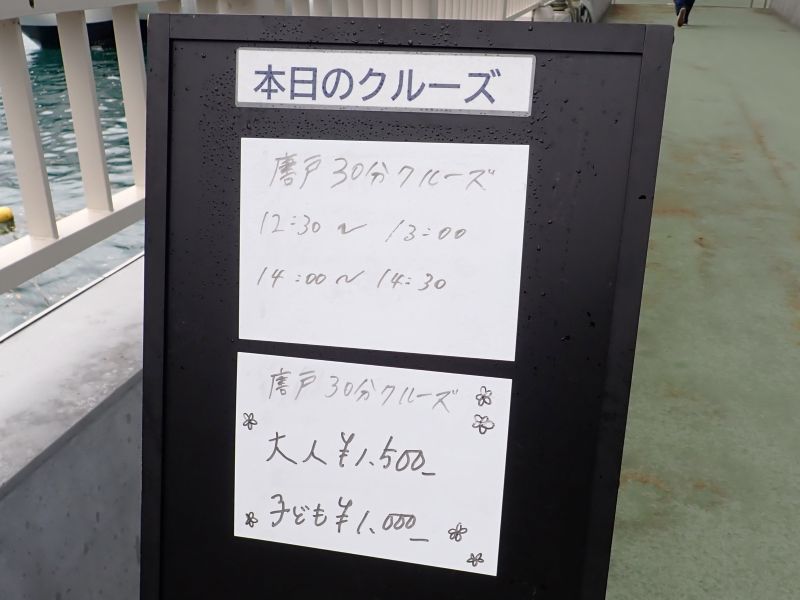 本日のクルーズ
唐戸30分クルーズ
12:30〜13:00
14:00〜14:30
唐戸30分クルーズ
大人¥1,500_
子ども¥1,000_